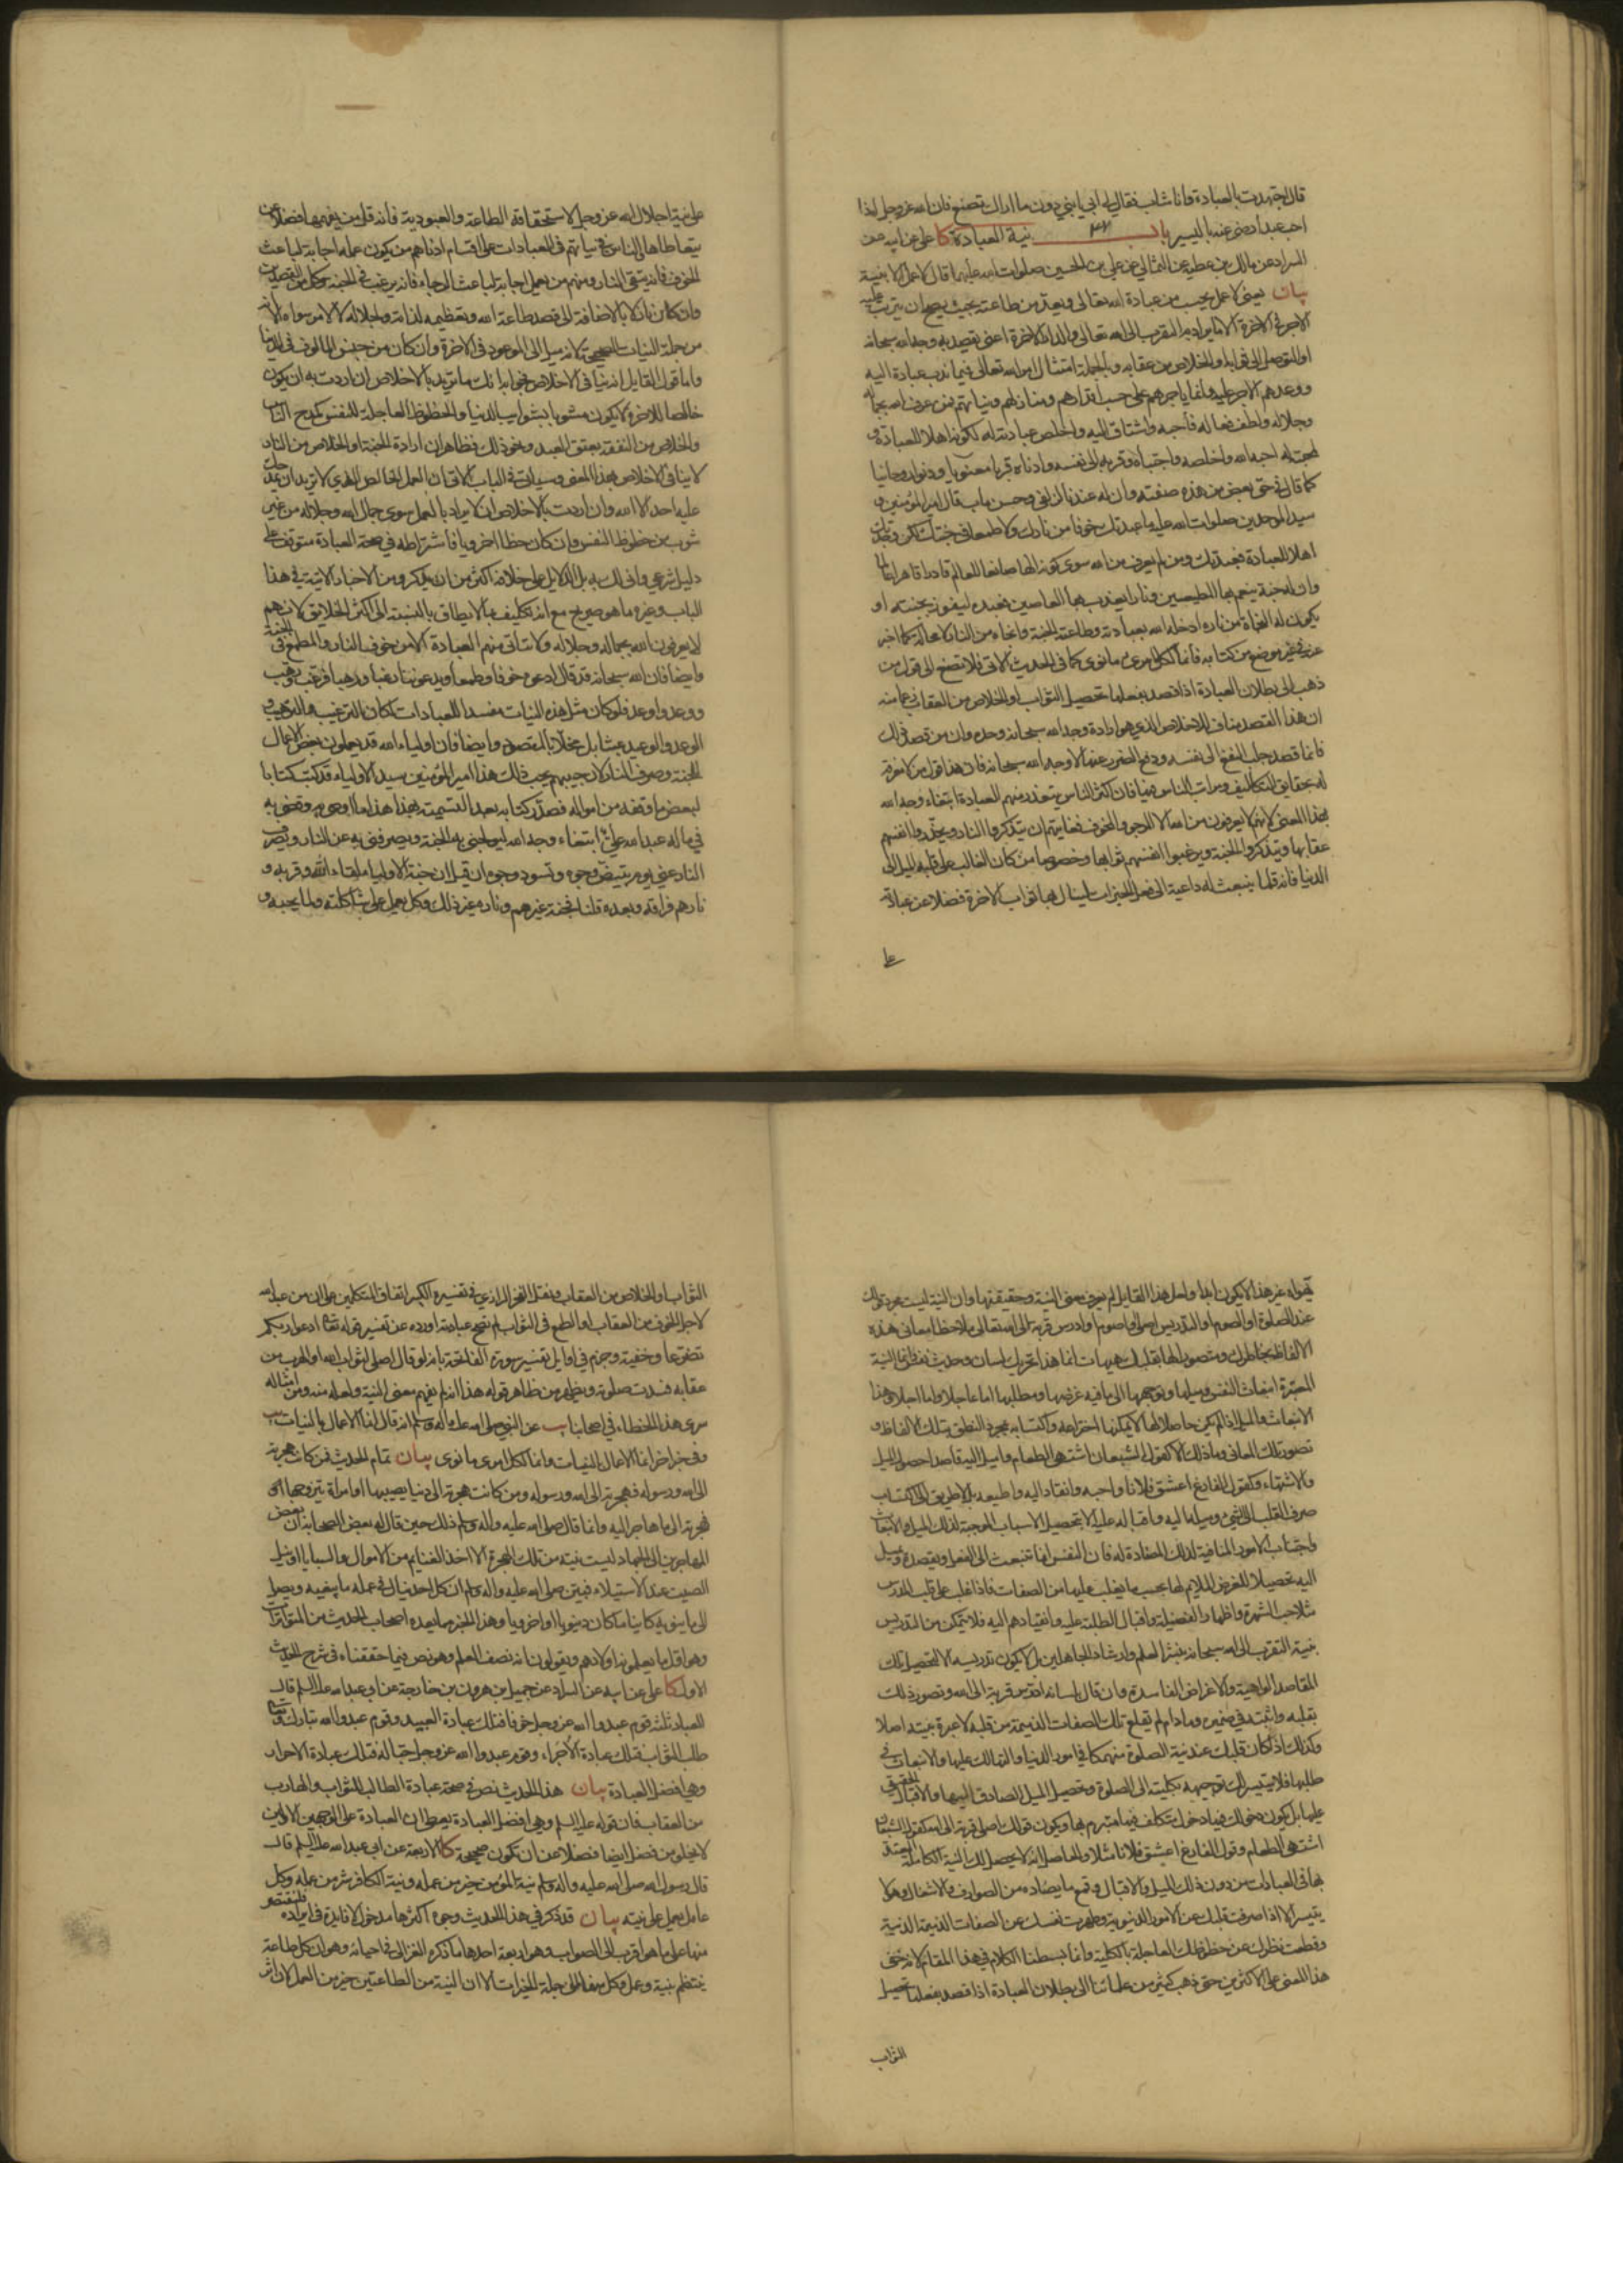 قال اجتهدت بالعبادة وانا شاب فقال لي ابي يا بني دون ما اراك تصنع فان الله عز وجل اذا
احب عبدا رضى عنه باليسير باب ٣٧ نية العبادة كا على عن ابيه عن
السراد عن مالك بن عطية عن الثمالي عن علي بن الحسين صلوات الله عليهما قال لا عمل الا بنية
بيان يعني لا عمل يحسب من عبادة الله تعالى ويعد من طاعته بحيث يصح ان يترتب عليه
الاجر في الاخرة الا ما يراد به التقرب الى الله تعالى والدار الاخرة اعني يقصد به وجه الله سبحانه
او التوصل الى ثوابه او الخلاص من عقابه وبالجملة امتثال امر الله تعالى فيما ندب عباده اليه
ووعدهم الاجر عليه وانما ياجرهم على حسب اقدارهم ومنازلهم ونياتهم فمن عرف الله بجماله
وجلاله ولطف فعاله فاحبه واشتاق اليه واخلص عبادته له لكونه اهلا للعبادة و
لمحبته له احبه الله واخلصه واجتباه وقربه الى نفسه وادناه قربا معنويا ودنوا روحانيا
كما قال في حق بعض من هذه صفته وان له عندنا لزلفى وحسن ماب قال امير المؤمنين و
سيد الموحدين صلوات الله عليه ما عبدتك خوفا من نارك ولا طمعا في جنتك لكن وجدتك
اهلا للعبادة فعبدتك ومن لم يعرف من الله سوى كونه الها صانعا للعالم قادرا قاهرا عالما
وان له جنة ينعم بها المطيعين ونارا يعذب بها العاصين فعبده ليفوز بجنته او
يكون له النجاة من ناره ادخله الله بعبادته وطاعته الجنة وانجاه من النار لا محالة كما اخبر
عنه في غير موضع من كتابه فانما لكل امرء ما نوى كما في الحديث الاتي فلا تصغ الى قول من
ذهب الى بطلان العبادة اذا قصد بفعلها تحصيل الثواب او الخلاص من العقاب زعما منه
ان هذا القصد مناف للاخلاص الذي هو ارادة وجه الله سبحانه وحده وان من قصد ذلك
فانما قصد جلب النفع الى نفسه ودفع الضرر عنها لا وجه الله سبحانه فان هذا قول من لا معرفة
له بحقائق التكاليف ومراتب الناس فيها فان اكثر الناس يتعذر منهم العبادة ابتغاء وجه الله
بهذا المعنى لانهم لا يعرفون من الله الا المرجو والمخوف فغايتهم ان يتذكروا النار ويحذروا انفسهم
عقابها ويتذكروا الجنة ويرغبوا انفسهم ثوابها وخصوصا من كان الغالب على قلبه الميل الى
الدنيا فانه قلما ينبعث له داعية الى فعل الخيرات لينال بها ثواب الاخرة فضلا عن عبادته
على
على نية اجلال الله عز وجل لاستحقاقه الطاعة والعبودية فانه قل من يفهمها فضلا عمن
يتعاطاها والناس في نياتهم في العبادات على اقسام ادناهم من يكون عمله اجابة لباعث
الخوف فانه يتقي النار ومنهم من يعمل اجابة لباعث الرجاء فانه يرغب في الجنة وكل من القصدين
وان كان نازلا بالاضافة الى قصد طاعة الله وتعظيمه لذاته ولجلاله لا لامر سواه الا انه
من جملة النيات الصحيحة لانه ميل الى الموعود في الاخرة وان كان من جنس المالوف في الدنيا
واما قول القايل انه ينافي الاخلاص فجوابه انك ما تريد بالاخلاص ان اردت به ان يكون
خالصا للاخرة لا يكون مشوبا بشوايب الدنيا والحظوظ العاجلة للنفس كمدح الناس
والخلاص من النفقة بعتق العبد ونحو ذلك فظاهر ان ارادة الجنة او الخلاص من النار
لا ينافي الاخلاص بهذا المعنى وسياتي في الباب الاتي ان العمل الخالص الذي لا تريد ان يحمدك
عليه احد الا الله وان اردت بالاخلاص ان لا يراد بالعمل سوى جمال الله وجلاله من غير
شوب من حظوظ النفس وان كان حظا اخرويا فاشتراطه في صحة العبادة متوقف على
دليل شرعي وانى لك به بل الدلايل على خلافه اكثر من ان يذكر ومن الاخبار الاتية في هذا
الباب وغيره ما هو صريح مع انه تكليف بما لا يطاق بالنسبة الى اكثر الخلايق لانهم
لا يعرفون الله بجماله وجلاله ولا تتاتى منهم العبادة الا من خوف النار والطمع في الجنة
وايضا فان الله سبحانه قد قال ادعوه خوفا وطمعا ويدعوننا رغبا ورهبا فرغب ورهب
ووعد واوعد فلو كان مثل هذه النيات مفسدا للعبادات لكان الترغيب والترهيب و
الوعد والوعيد عبثا بل مخلا بالمقصود وايضا فان اولياء الله قد يعملون بعض الاعمال
للجنة وصرف النار لان حبيبهم يحب ذلك هذا امير المؤمنين سيد الاولياء قد كتب كتابا
لبعض ما وقفه من امواله فصدر كتابه بعد التسمية بهذا هذا ما اوصى به وقضى به
في ماله عبد الله علي ابتغاء وجه الله ليولجني به الجنة ويصرفني به عن النار ويصرف
النار عني يوم تبيض وجوه وتسود وجوه ان قيل ان جنة الاولياء لقاء الله وقربه و
نارهم فراقه وبعده قلنا فجنة غيرهم وناره غير ذلك وكل يعمل على شاكلته ولما يحبه و
يهواه غير هذا لا يكون ابدا ولعل هذا القايل لم يعرف معنى النية وحقيقتها وان النية ليست مجرد قولك
عند الصلوة او الصوم او التدريس اصلي او اصوم او ادرس قربة الى الله تعالى ملاحظا معاني هذه
الالفاظ بخاطرك ومتصورا لها بقلبك هيهات انما هذا تحريك لسان وحديث نفس وانما النية
المعتبرة انبعاث النفس وميلها وتوجهها الى ما فيه غرضها ومطلبها اما عاجلا واما اجلا وهذا
الانبعاث والميل اذا لم يكن حاصلا لها لا يمكنها اختراعه واكتسابه بمجرد النطق بتلك الالفاظ و
تصور تلك المعاني وما ذلك الا كقول الشبعان اشتهي الطعام واميل اليه قاصدا حصول الميل
والاشتهاء وكقول الفارغ اعشق فلانا واحبه وانقاد اليه واطيعه بل لا طريق الى اكتساب
صرف القلب الى الشيء وميله اليه واقباله عليه الا بتحصيل الاسباب الموجبة لذلك الميل والانبعاث
واجتناب الامور المنافية لذلك المضادة له فان النفس انما تنبعث الى الفعل وتقصده وتميل
اليه تحصيلا للغرض الملايم لها بحسب ما يغلب عليها من الصفات فاذا غلب على قلب المدرس
مثلا حب الشهرة واظهار الفضيلة واقبال الطلبة عليه وانقيادهم اليه فلا يتمكن من التدريس
بنية التقرب الى الله سبحانه بنشر العلم وارشاد الجاهلين بل لا يكون تدريسه الا لتحصيل تلك
المقاصد الواهية والاغراض الفاسدة وان قال بلسانه ادرس قربة الى الله وتصور ذلك
بقلبه واثبته في ضميره وما دام لم يقلع تلك الصفات الذميمة من قلبه لا عبرة بنيته اصلا
وكذلك اذا كان قلبك عند نية الصلوة منهمكا في امور الدنيا والتهالك عليها والانبعاث في
طلبها فلا يتيسر لك توجيهه بكليته الى الصلوة وتحصيل الميل الصادق اليها والاقبال الحقيقي
عليها بل يكون دخولك فيها دخول متكلف فيها متبرم بها ويكون قولك اصلي قربة الى الله كقول الشبعان
اشتهي الطعام وقول الفارغ اعشق فلانا مثلا والحاصل انه لا يحصل لك النية الكاملة المعتد
بها في العبادات من دون ذلك الميل والاقبال وقمع ما يضاده من الصوارف والاشغال وهو لا
يتيسر الا اذا صرفت قلبك عن الامور الدنيوية وطهرت نفسك عن الصفات الذميمة الدنية
وقطعت نظرك عن حظوظك العاجلة بالكلية وانما بسطنا الكلام في هذا المقام لانه خفى
هذا المعنى على الاكثرين حتى ذهب كثير من علمائنا الى بطلان العبادة اذا قصد بفعلها تحصيل
الثواب
الثواب او الخلاص من العقاب ونقل الفخر الرازي في تفسيره الكبير اتفاق المتكلمين على ان من عبد الله
لاجل الخوف من العقاب او الطمع في الثواب لم تصح عبادته اورده عن تفسير قوله تعالى ادعوا ربكم
تضرعا وخفية وجزم في اوايل تفسير سورة الفاتحة بانه لو قال اصلي لثواب الله او الهرب من
عقابه فسدت صلوته ويظهر من ظاهر قوله هذا انه لم يفهم معنى النية ولعله منه ومن امثاله
سرى هذا الخطاء في اصحابنا يب عن النبي صلى الله عليه واله وسلم انه قال انما الاعمال بالنيات يب
وفي خبر اخر انما الاعمال بالنيات وانما لكل امرئ ما نوى بيان تمام الحديث فمن كانت هجرته
الى الله ورسوله فهجرته الى الله ورسوله ومن كانت هجرته الى دنيا يصيبها او امراة يتزوجها
فهجرته الى ما هاجر اليه وانما قال صلى الله عليه واله وسلم ذلك حين قال له بعض الصحابة ان بعض
المهاجرين الى الجهاد ليست نيته من تلك الهجرة الا اخذ الغنايم من الاموال والسبايا او نيل
الصيت عند الاستيلاء فبين صلى الله عليه واله وسلم ان كل احد ينال في عمله ما يبغيه ويصل
الى ما ينويه كاينا ما كان دنيويا او اخرويا وهذا الخبر مما يعده اصحاب الحديث من المتواترات
وهو اول ما يعلمونه اولادهم ويقولون انه نصف العلم وهو نص فيما حققناه في شرح الحديث
الاول كا على عن ابيه عن السراد عن جميل بن هرون بن خارجة عن ابي عبد الله عليه السلم قال
العباد ثلثة قوم عبدوا الله عز وجل خوفا فتلك عبادة العبيد وقوم عبدوا الله تبارك وتعالى
طلب الثواب فتلك عبادة الاجراء وقوم عبدوا الله عز وجل حبا له فتلك عبادة الاحرار
وهي افضل العبادة بيان هذا الحديث نص في صحة عبادة الطالب للثواب والهارب
من العقاب فان قوله عليه السلم وهي افضل العبادة يعطي ان العبادة على الوجهين الاولين
لا يخلو من فضل ايضا فضلا عن ان تكون صحيحة كا الاربعة عن ابي عبد الله عليه السلم قال
قال رسول الله صلى الله عليه واله وسلم نية المؤمن خير من عمله ونية الكافر شر من عمله وكل
عامل يعمل على نيته بيان قد ذكر في هذا الحديث وجوه اكثرها مدخول لا فايدة في ايراده فلنقتصر
منها على ما هو اقرب الى الصواب وهو اربعة احدها ما ذكره الغزالي في احيائه وهو ان كل طاعة
ينتظم بنية وعمل وكل منهما من جملة الخيرات الا ان النية من الطاعتين خير من العمل لان اثر